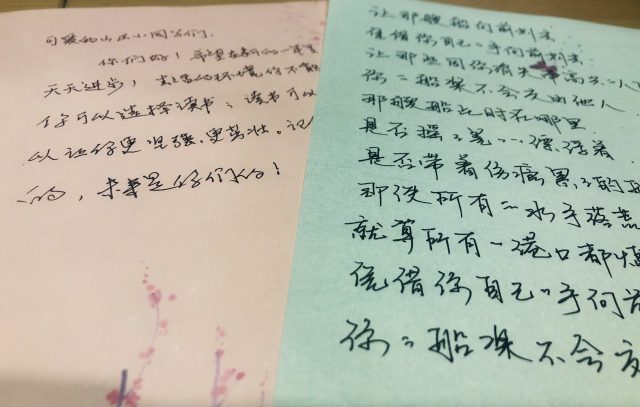 可爱的山区小同学们.
你们好! 希望在新的一年里
天天进步! 出生的环境你不能
你可以选择读书; 读书可以
以让你更坚强, 更茁壮。记
的, 未来是你们的!
让那艘船向前划去
凭借你自己的手向前划去
让那些因你有失
你的船桨不会交由他人
那艘船此时在哪里
是否摇摇晃晃漂浮着
是否带着伤痛累累的
那使所有的水手落荒
就算所有的港口都
凭借你自己的手向前
你的船桨不会交